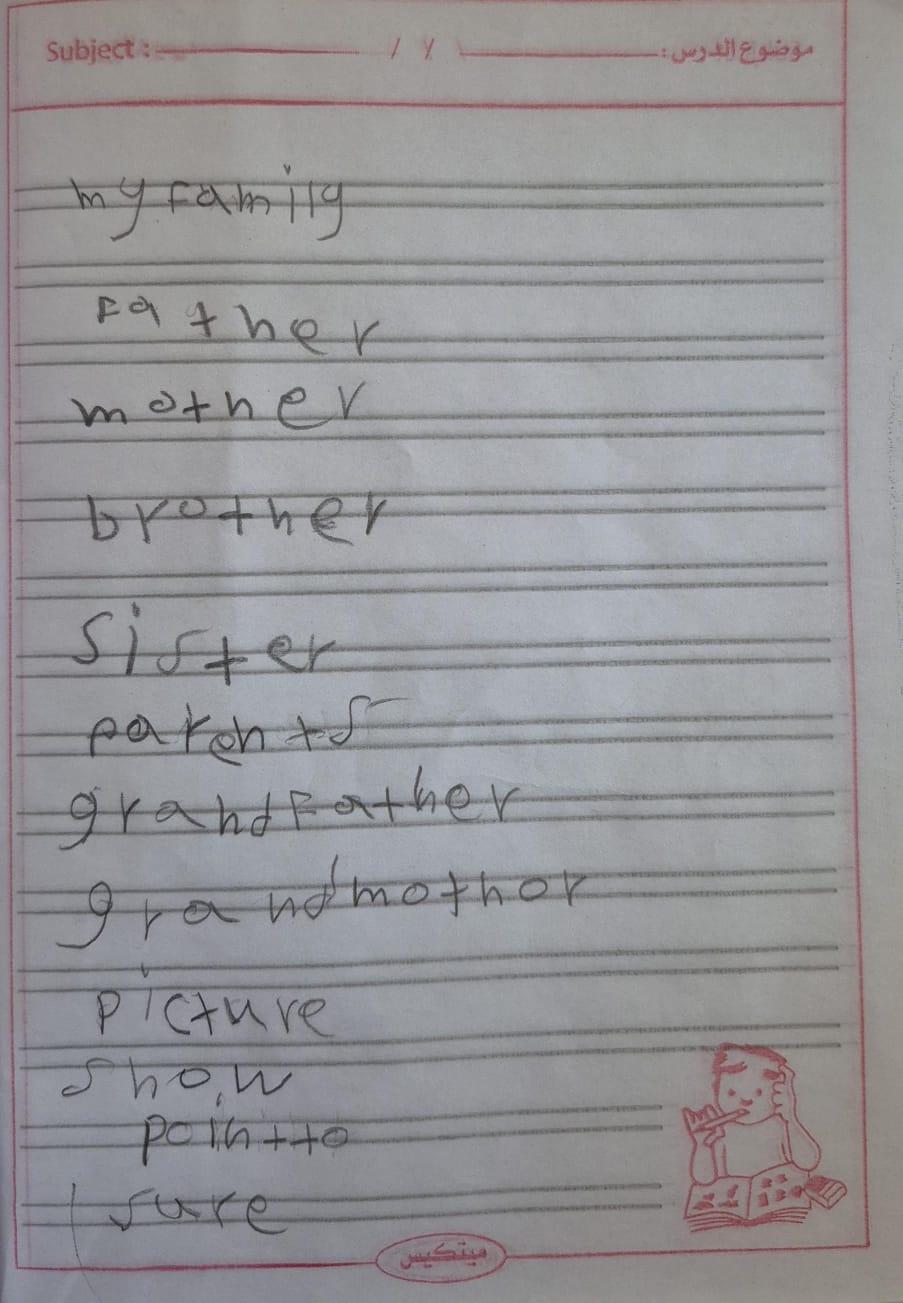 Subject : / / موضوع الدرس :
my family
Father
mother
brother
sister
parents
grandFather
grandmothor
picture
show
point to
sure
ميتكيس